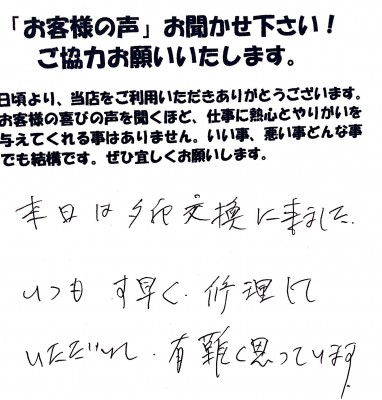 「お客様の声」お聞かせ下さい！
ご協力お願いいたします。
日頃より、当店をご利用いただきありがとうございます。
お客様の喜びの声を聞くほど、仕事に熱心とやりがいを
与えてくれる事はありません。いい事、悪い事どんな事
でも結構です。ぜひ宜しくお願いします。
本日は 交換に来ました.
いつも す早く.修理して
いただいて.有難く思っています